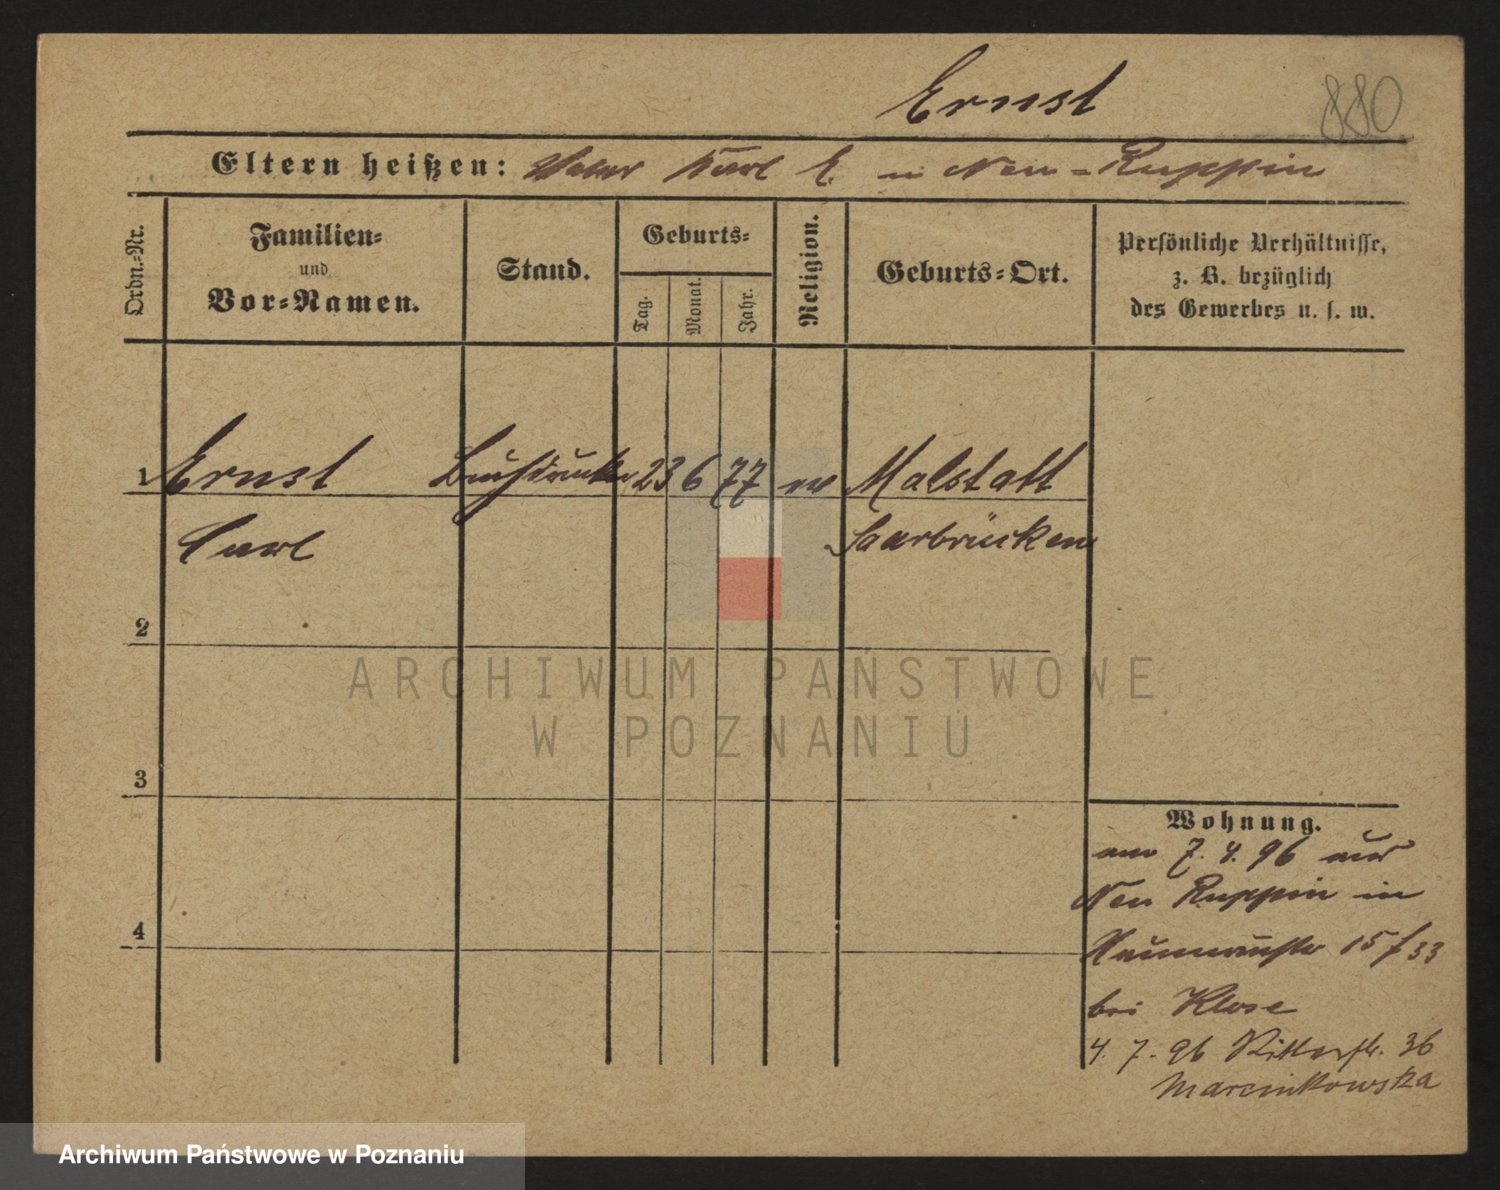 Ernst
880
Eltern heißen: Vater Karl E. in Neu-Ruppin
Ordn.-Nr.
Familien-
und
Vor-Namen.
Stand.
Geburts-
Tag.
Monat.
Jahr.
Religion.
Geburts-Ort.
Persönliche Verhältnisse,
z. B. bezüglich
des Gewerbes u. s. w.
1 Ernst Buchdrucker 23 6 77 ev Malstatt
Carl Saarbrücken
2
3
4
Wohnung.
am 7. 4. 96 aus
Neu Ruppin in
15 / 33
bei Klose
4. 7. 96 Ritterstr. 36
Marcinkowska
ARCHIWUM PAŃSTWOWE
W POZNANIU
Archiwum Państwowe w Poznaniu